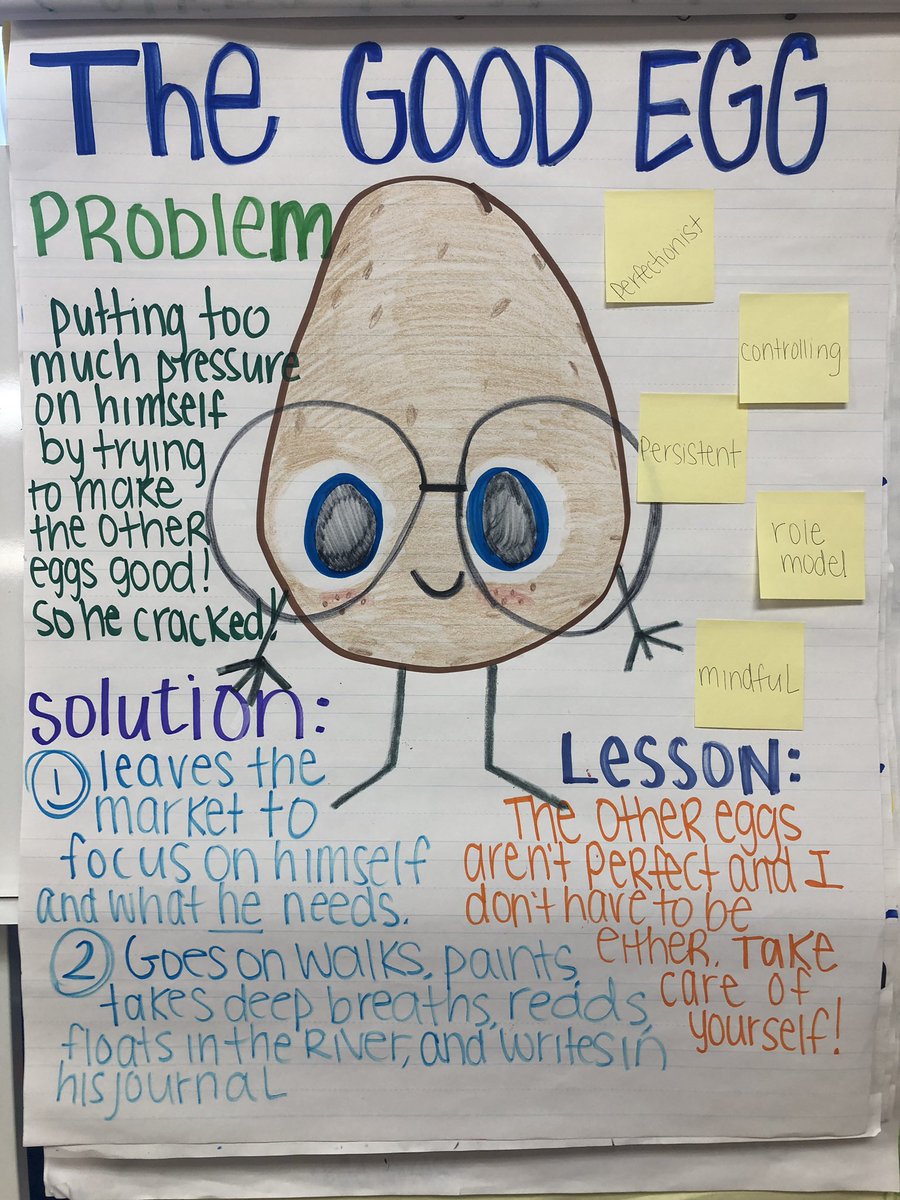 The GOOD EGG
PROBlEM
putting too
much pressure
on himself
by trying
to make
the other
eggs good!
So he cracked!
perfectionist
controlling
Persistent
role
model
mindful
Solution:
① leaves the
market to
focus on himself
and what he needs.
② Goes on walks, paints,
takes deep breaths, reads,
floats in the River, and writes in
his journal
LESSON:
The other eggs
aren't perfect and I
don't have to be
either. Take
care of
yourself!